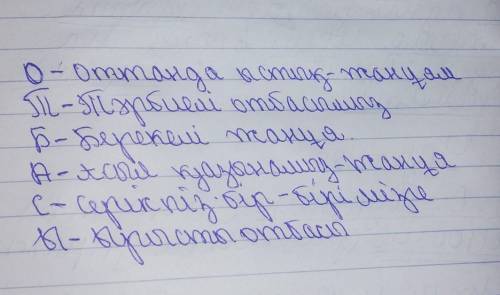 О - оттанда ыстық - жанұям
Т - Тәрбиелі отбасымыз
Б - Берекелі жанұя.
А - Асыл қазынамыз - жанұя
С - серікпіз бір - бірімізге
Ы - Ырысты отбасы